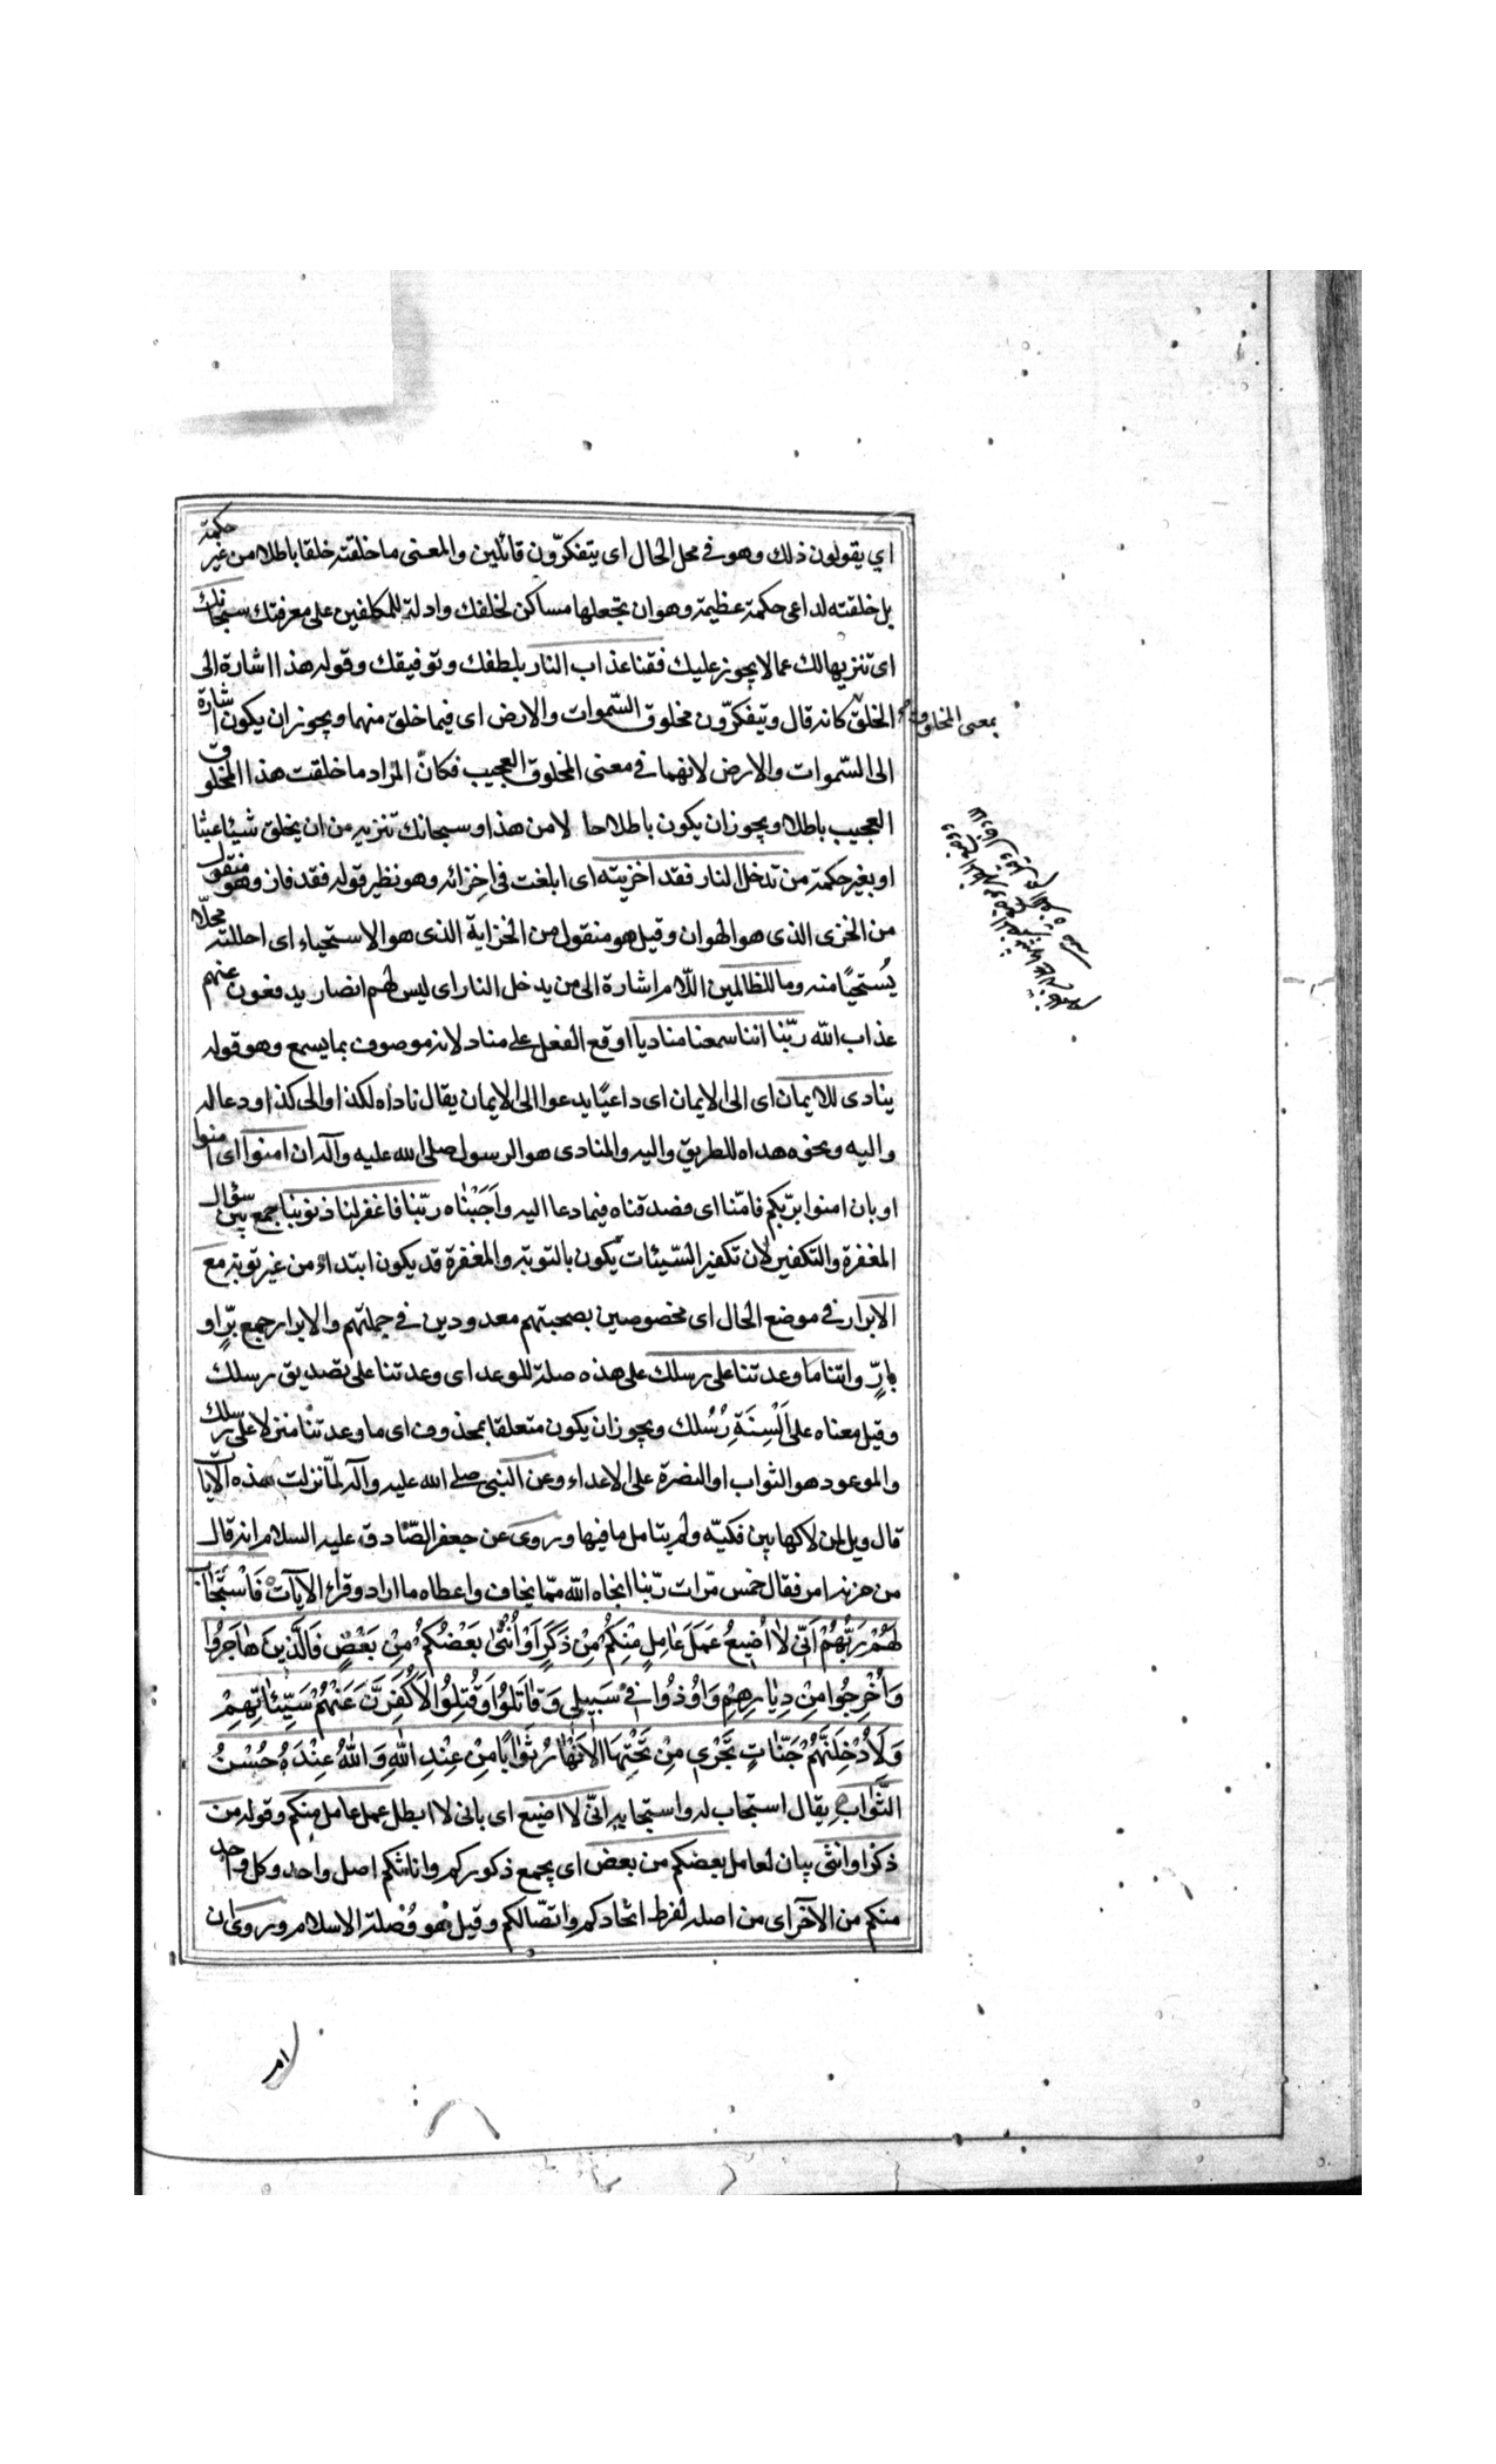 اي يقولون ذلك وهو في محل الحال اى يتفكّرون قائلين والمعنى ما خلقته خلقا باطلا من غير حكمة
بل خلقته لداعى حكمة عظيمة وهو ان تجعلها مساكن لخلقك وادلة للمكلفين على معرفتك سبحانك
اى تنزيها لك عما لا يجوز عليك فقنا عذاب النار بلطفك وتوفيقك وقوله هذا اشارة الى
الخلق كانه قال ويتفكّرون مخلوق السّموات والارض اى فيما خلق منهما ويجوز ان يكون اشارة
بمعنى المخلوق
الى السّموات والارض لانهما في معنى المخلوق العجيب فكانّ المراد ما خلقت هذا المخلوق
العجيب باطلا ويجوز ان يكون باطلا حا لا من هذا وسبحانك تنزيه من ان يخلق شيئا عبثا
او بغير حكمة من تدخل النار فقد اخزيته اى ابلغت فى اخزائه وهو نظير قوله فقد فاز وهو منقول
من الخزى الذى هو الهوان وقيل هو منقول من الخزاية الذى هو الاستحياء اى احللته محلّا
يُستحيًا منه وما للظالمين اللّام اشارة الى من يدخل النار اى ليس لهم انصار يدفعون عنهم
عذاب الله ربّنا اننا سمعنا مناديا اوقع الفعل على مناد لانه موصوف بما يسمع وهو قوله
ينادى للايمان اى الى الايمان اى داعيًا يدعوا الى الايمان يقال ناداه لكذا والى كذا ودعا له
واليه ونحوه هداه للطريق واليه والمنادى هو الرسول صلى الله عليه وآله ان امنوا اى امنوا
او بان امنوا بربّكم فامّنا اى فصدقناه فيما دعا اليه واَجَبْناه ربّنا فاغفر لنا ذنوبنا جمع بين سؤال
المغفرة والتكفير لان تكفير السّيئات يكون بالتوبة والمغفرة قد يكون ابتداء من غير توبة مع
الابرار في موضع الحال اى مخصوصين بصحبتهم معدودين في جملتهم والابرار جمع برّ او
بارّ واتنا ما وعدتنا على رسلك على هذه صلة للوعد اى وعدتنا على تصديق رسلك
وقيل معناه على اَلْسِنَةِ رُسُلك ويجوز ان يكون متعلقا بمحذوف اى ما وعدتنا منزلا على رسلك
والموعود هو الثواب او النصرة على الاعداء وعن النبى صلى الله عليه وآله لمّا نزلت هذه الآيات
قال ويل لمن لاكها بين فكيّه ولم يتامل ما فيها وروى عن جعفر الصّادق عليه السلام انه قال
من حزنه امر فقال خمس مرّات ربّنا انجاه الله ممّا يخاف واعطاه ما اراد وقراء الآيات فَاسْتَجابَ
لَهُمْ رَبُّهُمْ اَنّى لا اُضيعُ عَمَلَ عامِلٍ مِنْكُمْ مِنْ ذَكَرٍ اَوْ اُنْثى بَعْضُكُمْ مِنْ بَعْضٍ فَالَّذينَ هاجَرُوا
وَاُخْرِجُوا مِنْ دِيارِهِمْ وَاُوذُوا في سَبيلي وَقاتَلُوا وَقُتِلُوا لَاُكَفِّرَنَّ عَنْهُمْ سَيِّئاتِهِمْ
وَلَاُدْخِلَنَّهُمْ جَنّاتٍ تَجْري مِنْ تَحْتِهَا الْاَنْهارُ ثَوابًا مِنْ عِنْدِ اللهِ وَاللهُ عِنْدَهُ حُسْنُ
الثَّوابِ يقال استجاب له واستجابه انّى لا اضيع اى بانى لا ابطل عمل عامل منكم وقوله من
ذكر او انثى بيان لعامل بعضكم من بعض اى يجمع ذكوركم واناثكم اصل واحد وكل واحد
منكم من الآخر اى من اصله لفرط اتحادكم واتصّالكم وقيل هو وُصلة الاسلام وروى ان